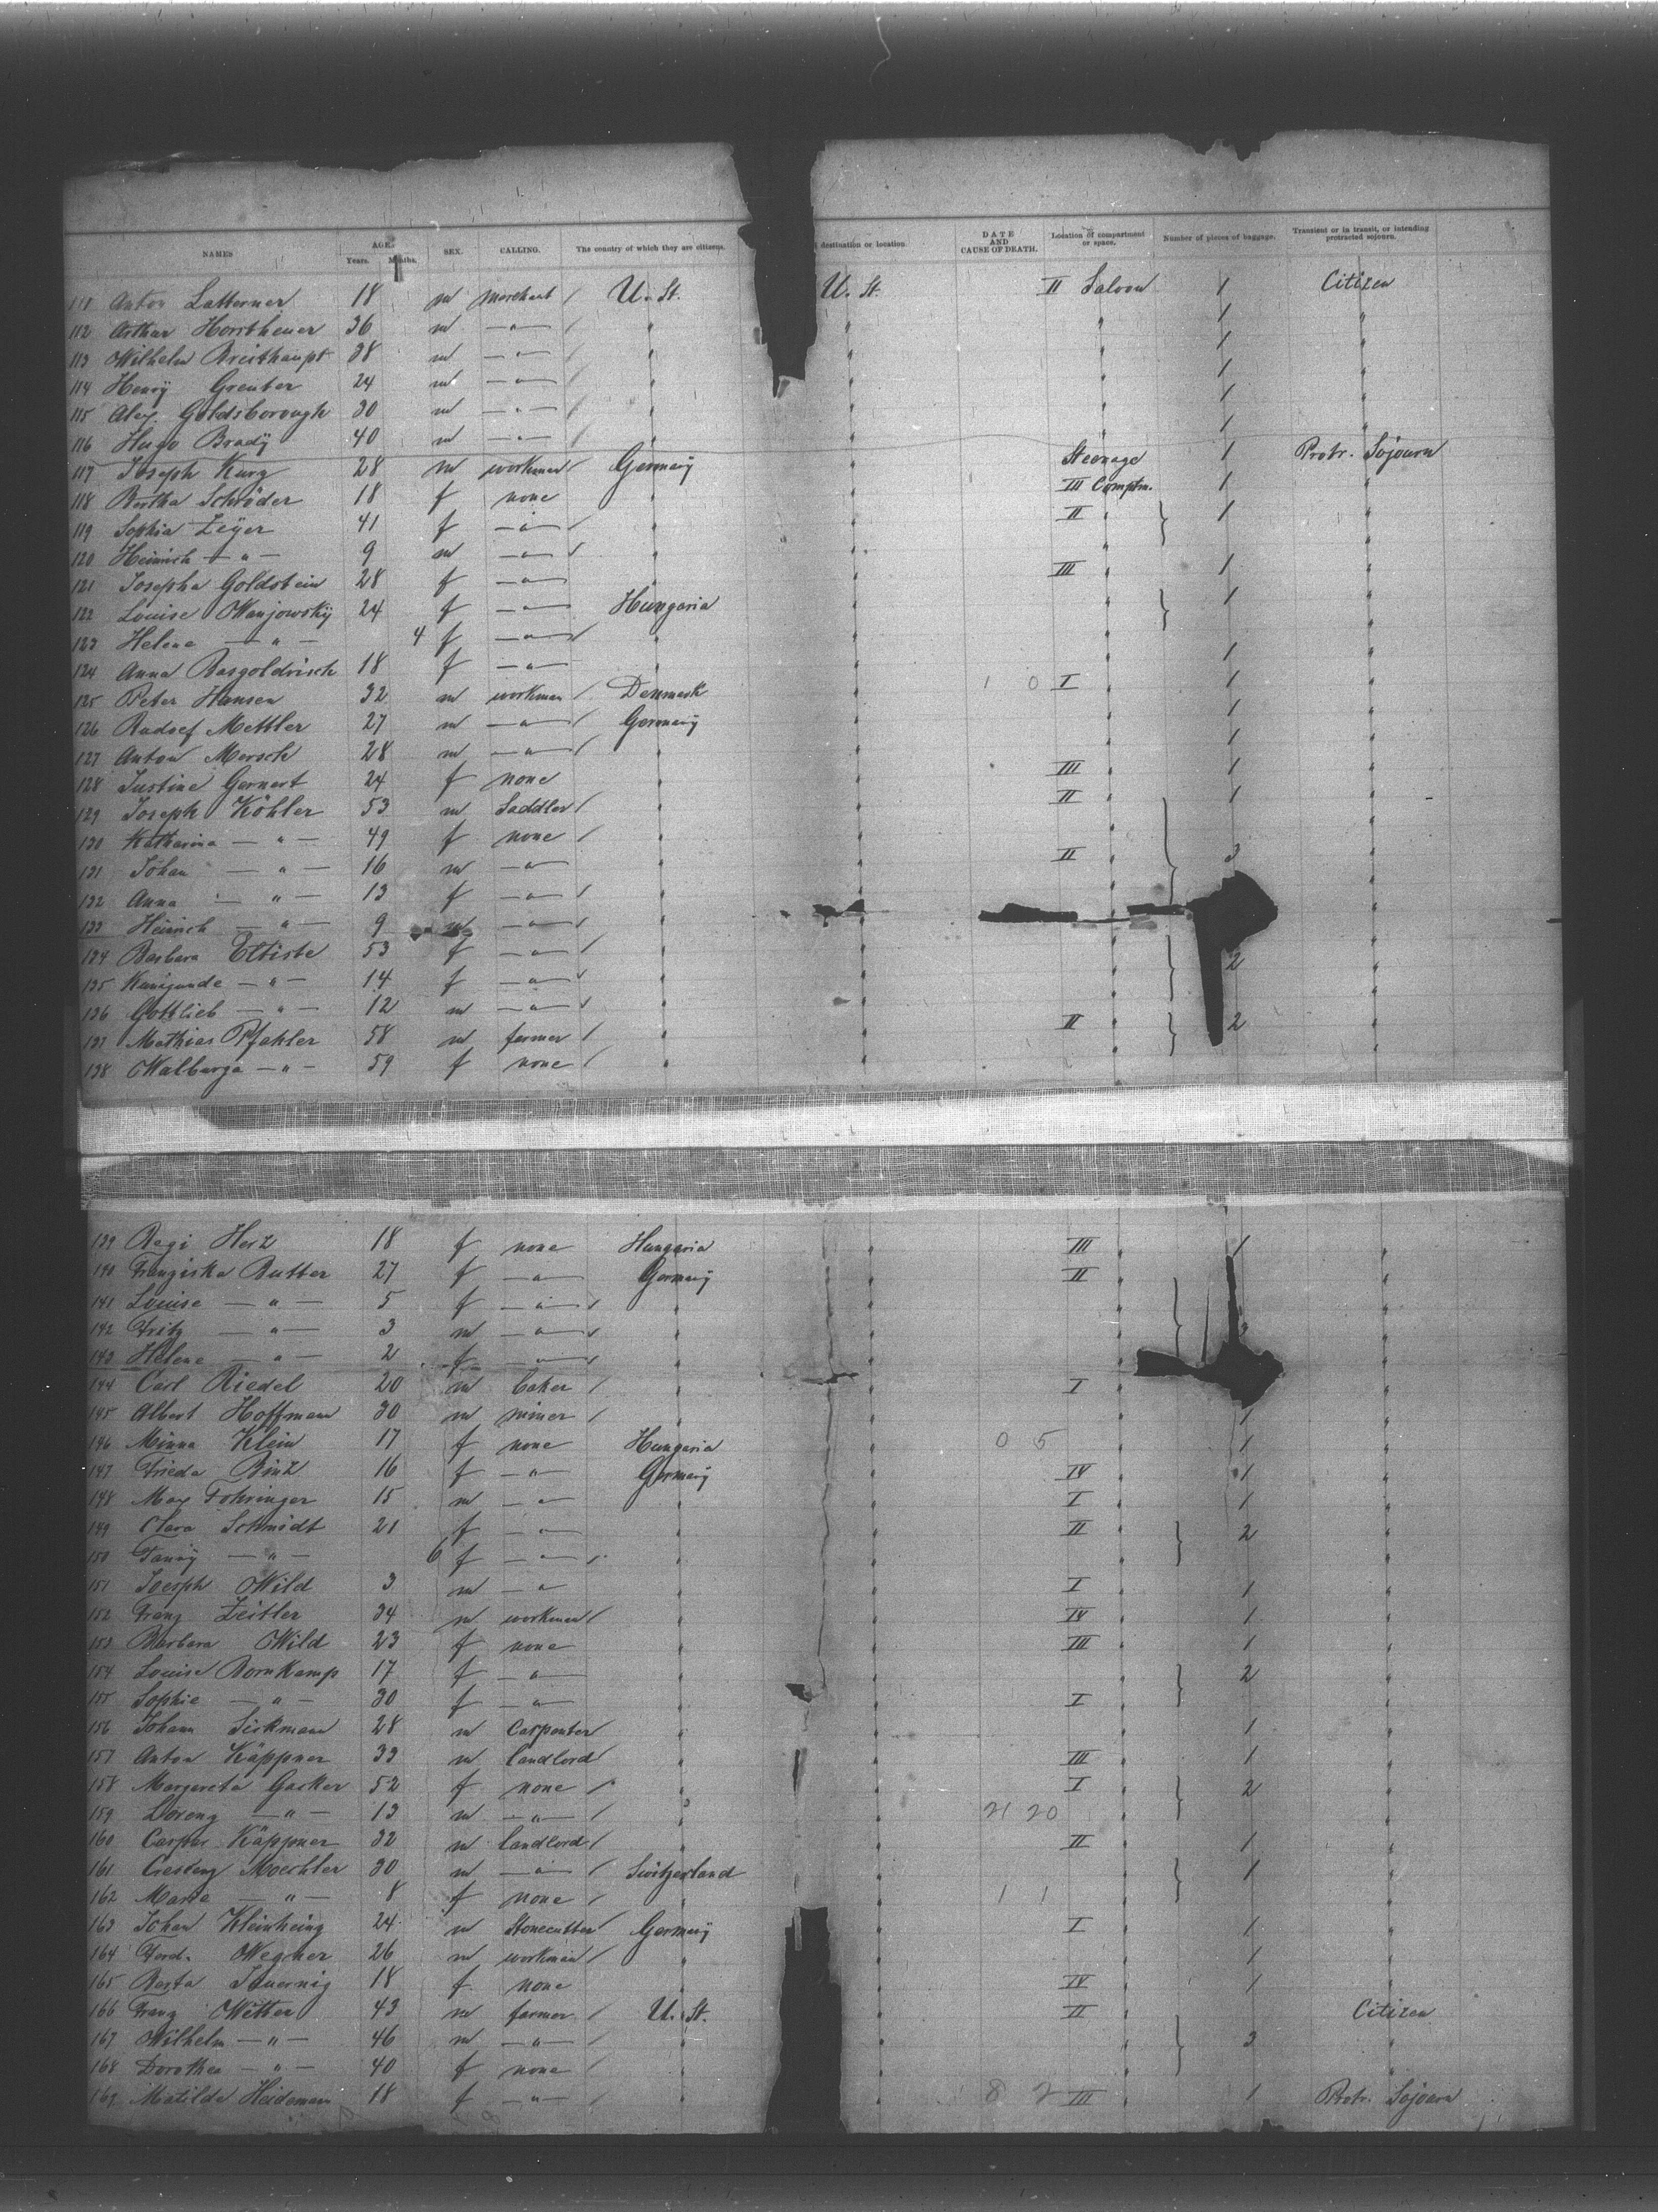 NAMES AGE. Years. Months. SEX. CALLING. The country of which they are citizens. destination or location. DATE AND CAUSE OF DEATH. Location of compartment or space. Number of pieces of baggage. Transient or in transit, or intending protracted sojourn.
111 Anton Latterner 18 m merchant / U. St. U. St. II Saloon 1 Citizen
112 Arthur Horstheuer 36 m — " — / " " " 1 "
113 Wilhelm Breithaupt 38 m — " — / " " 1 "
114 Henry Greuter 24 m — " — / " " 1 "
115 Alex. Goldsborough 30 m — " — / " " 1 "
116 Hugo Brady 40 m — " — / " " 1 "
117 Joseph Kurz 28 m workman / Germany " Steerage 1 Protr. Sojourn
118 Bertha Schröder 18 f none " " III Comptm. 1 "
119 Sophia Zeyer 41 f — " — / " " II " 1 "
120 Heinrich — " — 9 m — " — / " " " "
121 Josepha Goldstein 28 f — " — " " III " 1 "
122 Louise Wanjowsky 24 f — " — Hungaria " " 1 "
123 Helene — " — 4 f — " — / " " " "
124 Anna 18 f — " — " " " 1 "
125 Peter Hansen 32 m workman / Denmark " 1 0 I " 1 "
126 Mettler 27 m — " — / Germany " " 1 "
127 Anton Mersch 28 m — " — / " " " 1 "
128 Justine Gernert 24 f none " " III " 1 "
129 Joseph Köhler 53 m Saddler / " " II " 1 "
130 Katharina — " — 49 f none / " " " "
131 Johan — " — 16 m — " — " " II " 3 "
132 Anna — " — 13 f — " — / " " " "
133 Heinrich — " — 9 m — " — / " " "
134 Barbara Eltiste 53 f — " — / " " " 2 "
135 Kunigunde — " — 14 f — " — / " " " "
136 Gottlieb — " — 12 m — " — / " " " "
137 Mathias Pfahler 58 m farmer / " " II " 2 "
138 Walburga — " — 59 f none / " " " "
139 Regi Herz 18 f none Hungaria " III " 1 "
140 Franziska Butter 27 f — " — Germany " II " "
141 Louise — " — 5 f — " — / " " " "
142 Fritz — " — 3 m — " — / " " " "
143 Helene — " — 2 f — " — / " " "
144 Carl Riedel 20 m baker / " " I " "
145 Albert Hoffmann 30 m miner / " " " 1 "
146 Minna Klein 17 f none Hungaria " 0 5 " 1 "
147 Frieda Binz 16 f — " — Germany " IV " 1 "
148 Max Fohringer 15 m — " — " " I " 1 "
149 Clara Schmidt 21 f — " — " " II " 2 "
150 Fanny — " — 6 f — " — / " " " "
151 Joesph Wild 3 m — " — " " I " 1 "
152 Franz Zeitler 34 m workman / " " IV " 1 "
153 Barbara Wild 23 f none " " III " 1 "
154 Louise Bornkamp 17 f — " — " " " 2 "
155 Sophie — " — 30 f — " — " " I " "
156 Johann Sirkmann 28 m Carpenter " " " 1 "
157 Anton Käppner 33 m landlord / " " III " 1 "
158 Margareta Gasker 52 f none / " " I " 2 "
159 Lorenz — " — 13 m — " — / " " 21 20 " "
160 Caspar Käppner 32 m landlord / " " II " 1 "
161 Moechler 30 m — " — / Switzerland " " 1 "
162 Marie — " — 8 f none / " " 1 1 " "
163 Johan Kleinheinz 24 m Stonecutter / Germany " I " 1 "
164 Ferd. Wegner 26 m workman / " " " 1 "
165 18 f none " " IV " 1 "
166 Franz Witter 43 m farmer / U. St. " II " Citizen
167 Wilhelm — " — 46 m — " — / " " " 3 "
168 Dorothea — " — 40 f none / " " " "
169 Matilda Heidemann 18 f — " — / " " 8 2 III " 1 Protr. Sojourn